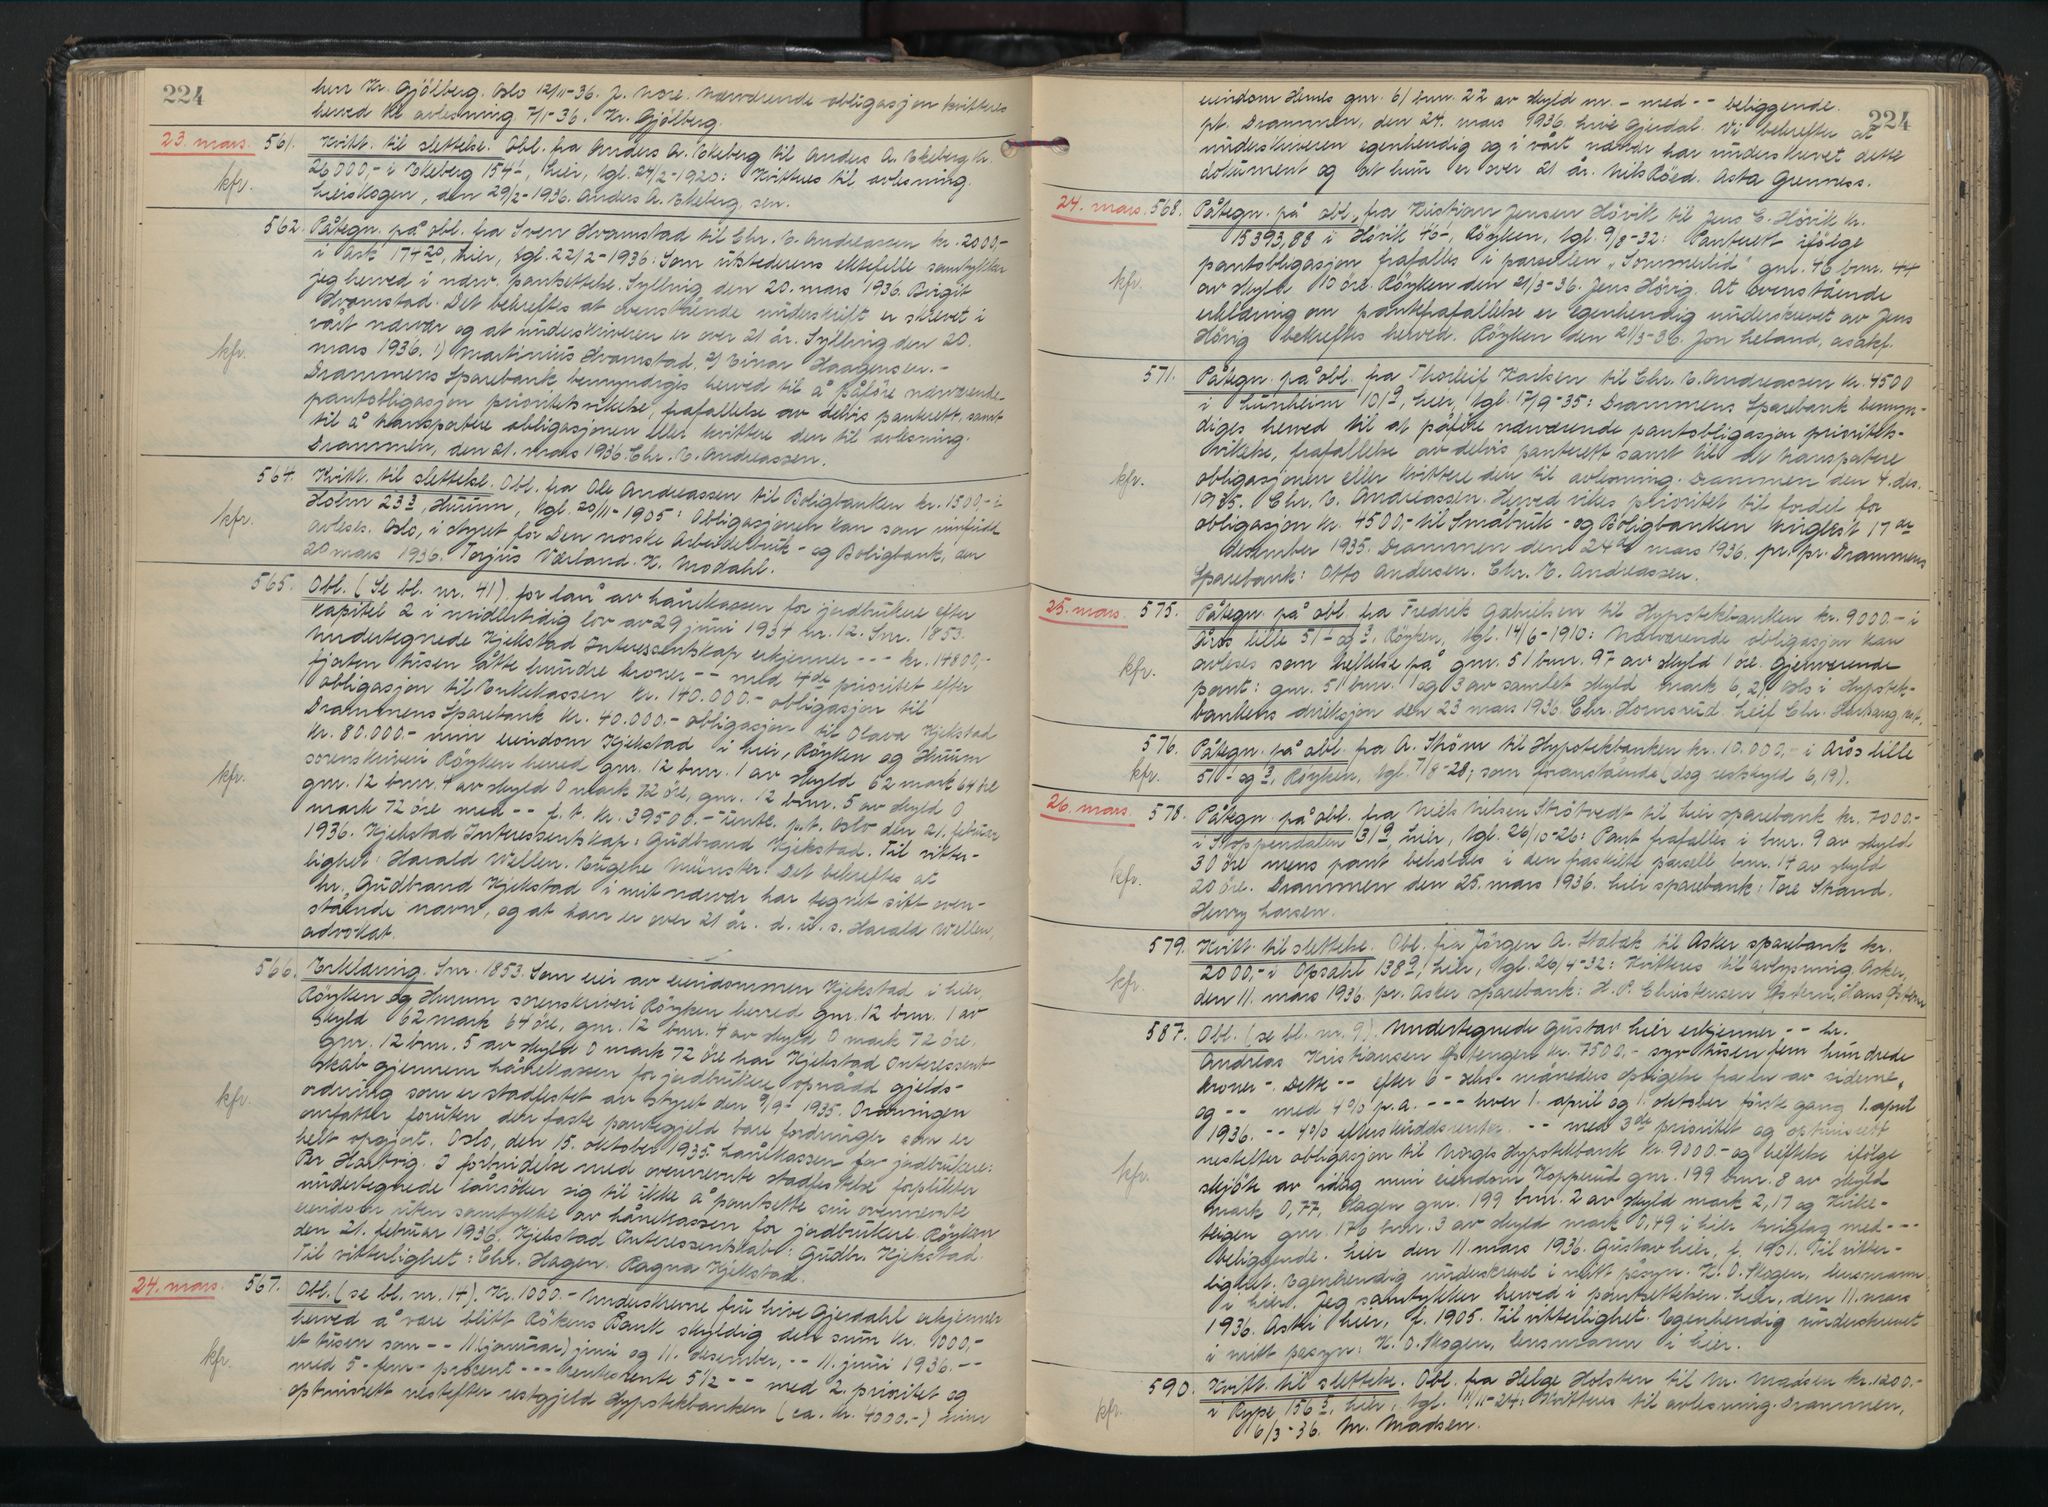 224
hen Kr. Gjölberg. Oslo 12/11-36. J. Nore. Nærværende obligasjon kvitteres
herved til avlesning 7/1-36. Kr. Gjölberg.
23. mars. 561. Kvitt. til slettelse. Obl. fra Anders A. Ekeberg til Anders A. Ekeberg kr.
26000,- i Ekeberg 154¹, Lier, tgl. 24/2-1920: Kvitteres til avlesning.
kfr. Lierskogen, den 29/2-1936. Anders A. Ekeberg, sen.
562. Påtegn. på obl. fra Sven Hvamstad til Chr. E. Andreassen kr. 2000,-
i Ask 174²⁰, Lier, tgl. 22/2-1936: Som utstederens ektefelle samtykker
jeg herved i nærv. pantsettelse. Sylling den 20. mars 1936. Birgit
Hvamstad. Det bekreftes at ovenstående underskrift er skrevet i
vårt nærvær og at underskriveren er over 21 år. Sylling den 20.
kfr. mars 1936. 1) Martinius Hvamstad. 2) Einar Haagensen. -
Drammens Sparebank bemyndiges herved til å påföre nærværende
pantobligasjon prioritetsvikelse, frafallelse av delvis panterett, samt
til å transportere obligasjonen eller kvittere den til avlesning.
Drammen, den 21. mars 1936. Chr. E. Andreassen.
564. Kvitt. til slettelse. Obl. fra Ole Andreassen til Boligbanken kr. 1500,- i
Holm 23³, Hurum, tgl. 20/11-1905: Obligasjonen kan som innfridd
kfr. avleses. Oslo, i styret for Den norske Arbeiderbruk- og Boligbank, den
20 mars 1936. Torjus Værland. K. Modahl.
565. Obl. (Se bl. nr. 41) for lån av Lånekassen for jordbrukere efter
kapitel 2 i midlertidig lov av 29 juni 1934 nr. 12. Snr. 1853.
Undertegnede Kjekstad Interessentskap erkjenner --- kr. 14800,-
fjorten tusen åtte hundre kroner -- med 4de prioritet efter
obligasjon til Enkekassen kr. 140.000.- obligasjon til
Drammens Sparebank kr. 40.000.- obligasjon til Olava Kjekstad
kr. 80.000.- min eiendom Kjekstad i Lier, Röyken og Hurum
sorenskriveri Röyken herred gnr. 12 bnr. 1 av skyld 62 mark 64 öre
kfr. gnr. 12 bnr. 4 av skyld 0 mark 72 öre, gnr. 12 bnr. 5 av skyld 0
mark 72 öre med -- f. t. kr. 39500.- rente. p.t. Oslo den 21. februar
1936. Kjekstad Interessentskap: Gudbrand Kjekstad. Til vitter-
lighet: Harald Wellen. Eugenie Münster. Det bekreftes at
hr. Gudbrand Kjekstad i mitt nærvær har tegnet sitt oven-
stående navn, og at han er over 21 år. d. u. s. Harald Wellen,
advokat.
566. Erklæring. Snr. 1853. Som eier av eiendommen Kjekstad i Lier,
Röyken og Hurum sorenskriveri Röyken herred gnr. 12 bnr. 1 av
skyld 62 mark 64 öre, gnr. 12 bnr. 4 av skyld 0 mark 72 öre,
gnr. 12 bnr. 5 av skyld 0 mark 72 öre har Kjekstad Interessent-
skab gjennem Lånekassen for jordbrukere opnådd gjelds-
ordning som er stadfestet av styret den 9/9- 1935. Ordningen
kfr. omfatter foruten den faste pantegjeld bare fordringer som er
helt opgjort. Oslo, den 15. oktober 1935. Lånekassen for jordbrukere:
Per Hartvig. I forbindelse med ovennevnte stadfestelse forplikter
undertegnede lånsöker sig til ikke å pantsette sin ovennevnte
eiendom uten samtykke av Lånekassen for jordbrukere. Röyken
den 21. februar 1936. Kjekstad Interessentskab: Gudbr. Kjekstad.
Til vitterlighet: Chr. Hagen. Ragna Kjekstad.
24. mars. 567. Obl. (se bl. nr. 14). Kr. 1000.- Underskrevne fru Live Gjerdahl erkjenner
herved å være blitt Rökens Bank skyldig den sum kr. 1000,-
et tusen som -- 11 (januar) juni og 11. desember, -- 11. juni 1936. --
kfr. med 5-fem- procent --- rentesrente 5½ -- med 2. prioritet og
optrinsrett nestefter restgjeld Hypotekbanken (ca. kr. 4000.-) min
224
eiendom Hernes gnr. 61 bnr. 22 av skyld m. - med -- beliggende.
pt. Drammen, den 24. mars 1936. Live Gjerdal. Vi bekrefter at
underskriveren egenhendig og i vårt nærvær har underskrevet dette
dokument og at hun er over 21 år. Nils Röed. Asta Grennes.
24. mars. 568. Påtegn. på obl. fra Kristian Jensen Hövik til Jens C. Hövik kr.
15393,88 i Hövik 46¹, Röyken, tgl. 9/8-32: Panterett ifölge
pantobligasjon frafalles i parsellen "Sommerlid" gnr. 46 bnr. 44
kfr. av skyld 10 öre. Röyken den 21/3-36. Jens Hövig. At ovenstående
erklæring om pantefrafallelse er egenhendig underskrevet av Jens
Hövig bekreftes herved. Röyken den 21/3-36. Jon Leland, o.sakf.
571. Påtegn. på obl. fra Thorleif Karlsen til Chr. E. Andreassen kr. 4500
i Lunheim 101⁹, Lier, tgl. 17/9-35: Drammens Sparebank bemyn-
diges herved til at påföre nærværende pantobligasjon prioritets-
vikelse, frafallelse av delvis panterett samt til at transportere
kfr. obligasjonen eller kvittere den til avlesning. Drammen den 4. des.
1935. Chr. E. Andreassen. Herved vikes prioritet til fordel for
obligasjon kr. 4500.- til Småbruk- og Boligbanken tinglest 17de
desember 1935. Drammen den 24de mars 1936. pr. pr. Drammens
Sparebank: Otto Andersen. Chr. E. Andreassen.
25. mars. 575. Påtegn. på obl. fra Fredrik Gabrielsen til Hypotekbanken kr. 9000.- i
Åros lille 51¹ og ³, Röyken, tgl. 14/6-1910: Nærværende obligasjon kan
avleses som heftelse på gnr. 51 bnr. 97 av skyld 1 öre. Gjenværende
kfr. pant: gnr. 51 bnr. 1 og 3 av samlet skyld mark 6,21 Oslo i Hypotek-
bankens direksjon den 23 mars 1936. Chr. Homsrud. Leif Chr. Hartsang, ref.
576. Påtegn. på obl. fra A. Ström til Hypotekbanken kr. 10.000,- i Åros lille
kfr. 51¹ og ³, Röyken, tgl. 7/8-28; som foranstående (dog restskyld 6,19).
26. mars. 578. Påtegn. på obl. fra Niels Nilsen Strötvedt til Lier sparebank kr. 7000.-
i Stoppendalen 131⁹, Lier, tgl. 26/10-26: Pant frafalles i bnr. 9 av skyld
30 öre mens pant beholdes i den fraskilte parsell, bnr. 14 av skyld
kfr. 20 öre. Drammen den 25. mars 1936. Lier sparebank: Tore Strand.
Henry Larsen.
579. Kvitt. til slettelse. Obl. fra Jörgen A. Stabæk til Asker sparebank kr.
2000,- i Opsahl 138⁹, Lier, tgl. 26/4-32: Kvitteres til avlysning. Asker,
kfr. den 11. mars 1936. pr. Asker sparebank: H. P. Christensen Östern, Hans Östern
587. Obl. (se bl. nr. 9). Undertegnede Gustav Lier erkjenner -- hr.
Andreas Kristiansen Östengen kr. 7500.- syv tusen fem hundrede
kroner -. Dette -- efter 6 - seks- måneders opsigelse fra en av siderne,
og -- med 4% p.a. --- hver 1. april og 1. oktober förste gang 1. april
1936. -- 4% efterskuddsrenter. -- med 3de prioritet og optrinsrett
nestefter obligasjon til Norges Hypotekbank kr. 9000.- og heftelse ifölge
kfr. skjöte av idag min eiendom Kopperud gnr. 199 bnr. 8 av skyld
mark 0,77, Hagen gnr. 199 bnr. 2 av skyld mark 2,17 og Kirke-
teigen gnr. 176 bnr. 3 av skyld mark 0,49 i Lier tinglag med ---
beliggende. Lier den 11. mars 1936. Gustav Lier, f. 1901. Til vitter-
lighet. Egenhendig underskrevet i mitt påsyn. K. O. Skogen, lensmann
i Lier. Jeg samtykker herved i pantsettelsen. Lier, den 11. mars
1936. Aslri Lier, f. 1905. Til vitterlighet. Egenhendig underskrevet
i mitt påsyn: K. O. Skogen, lensmann i Lier.
590. Kvitt. til slettelse. Obl. fra Helge Holsten til M. Madsen kr. 1200.-
i Rype 156³, Lier, tgl. 11/11-24: Kvitteres til avlesning. Drammen,
kfr. 6/3-36. M. Madsen.